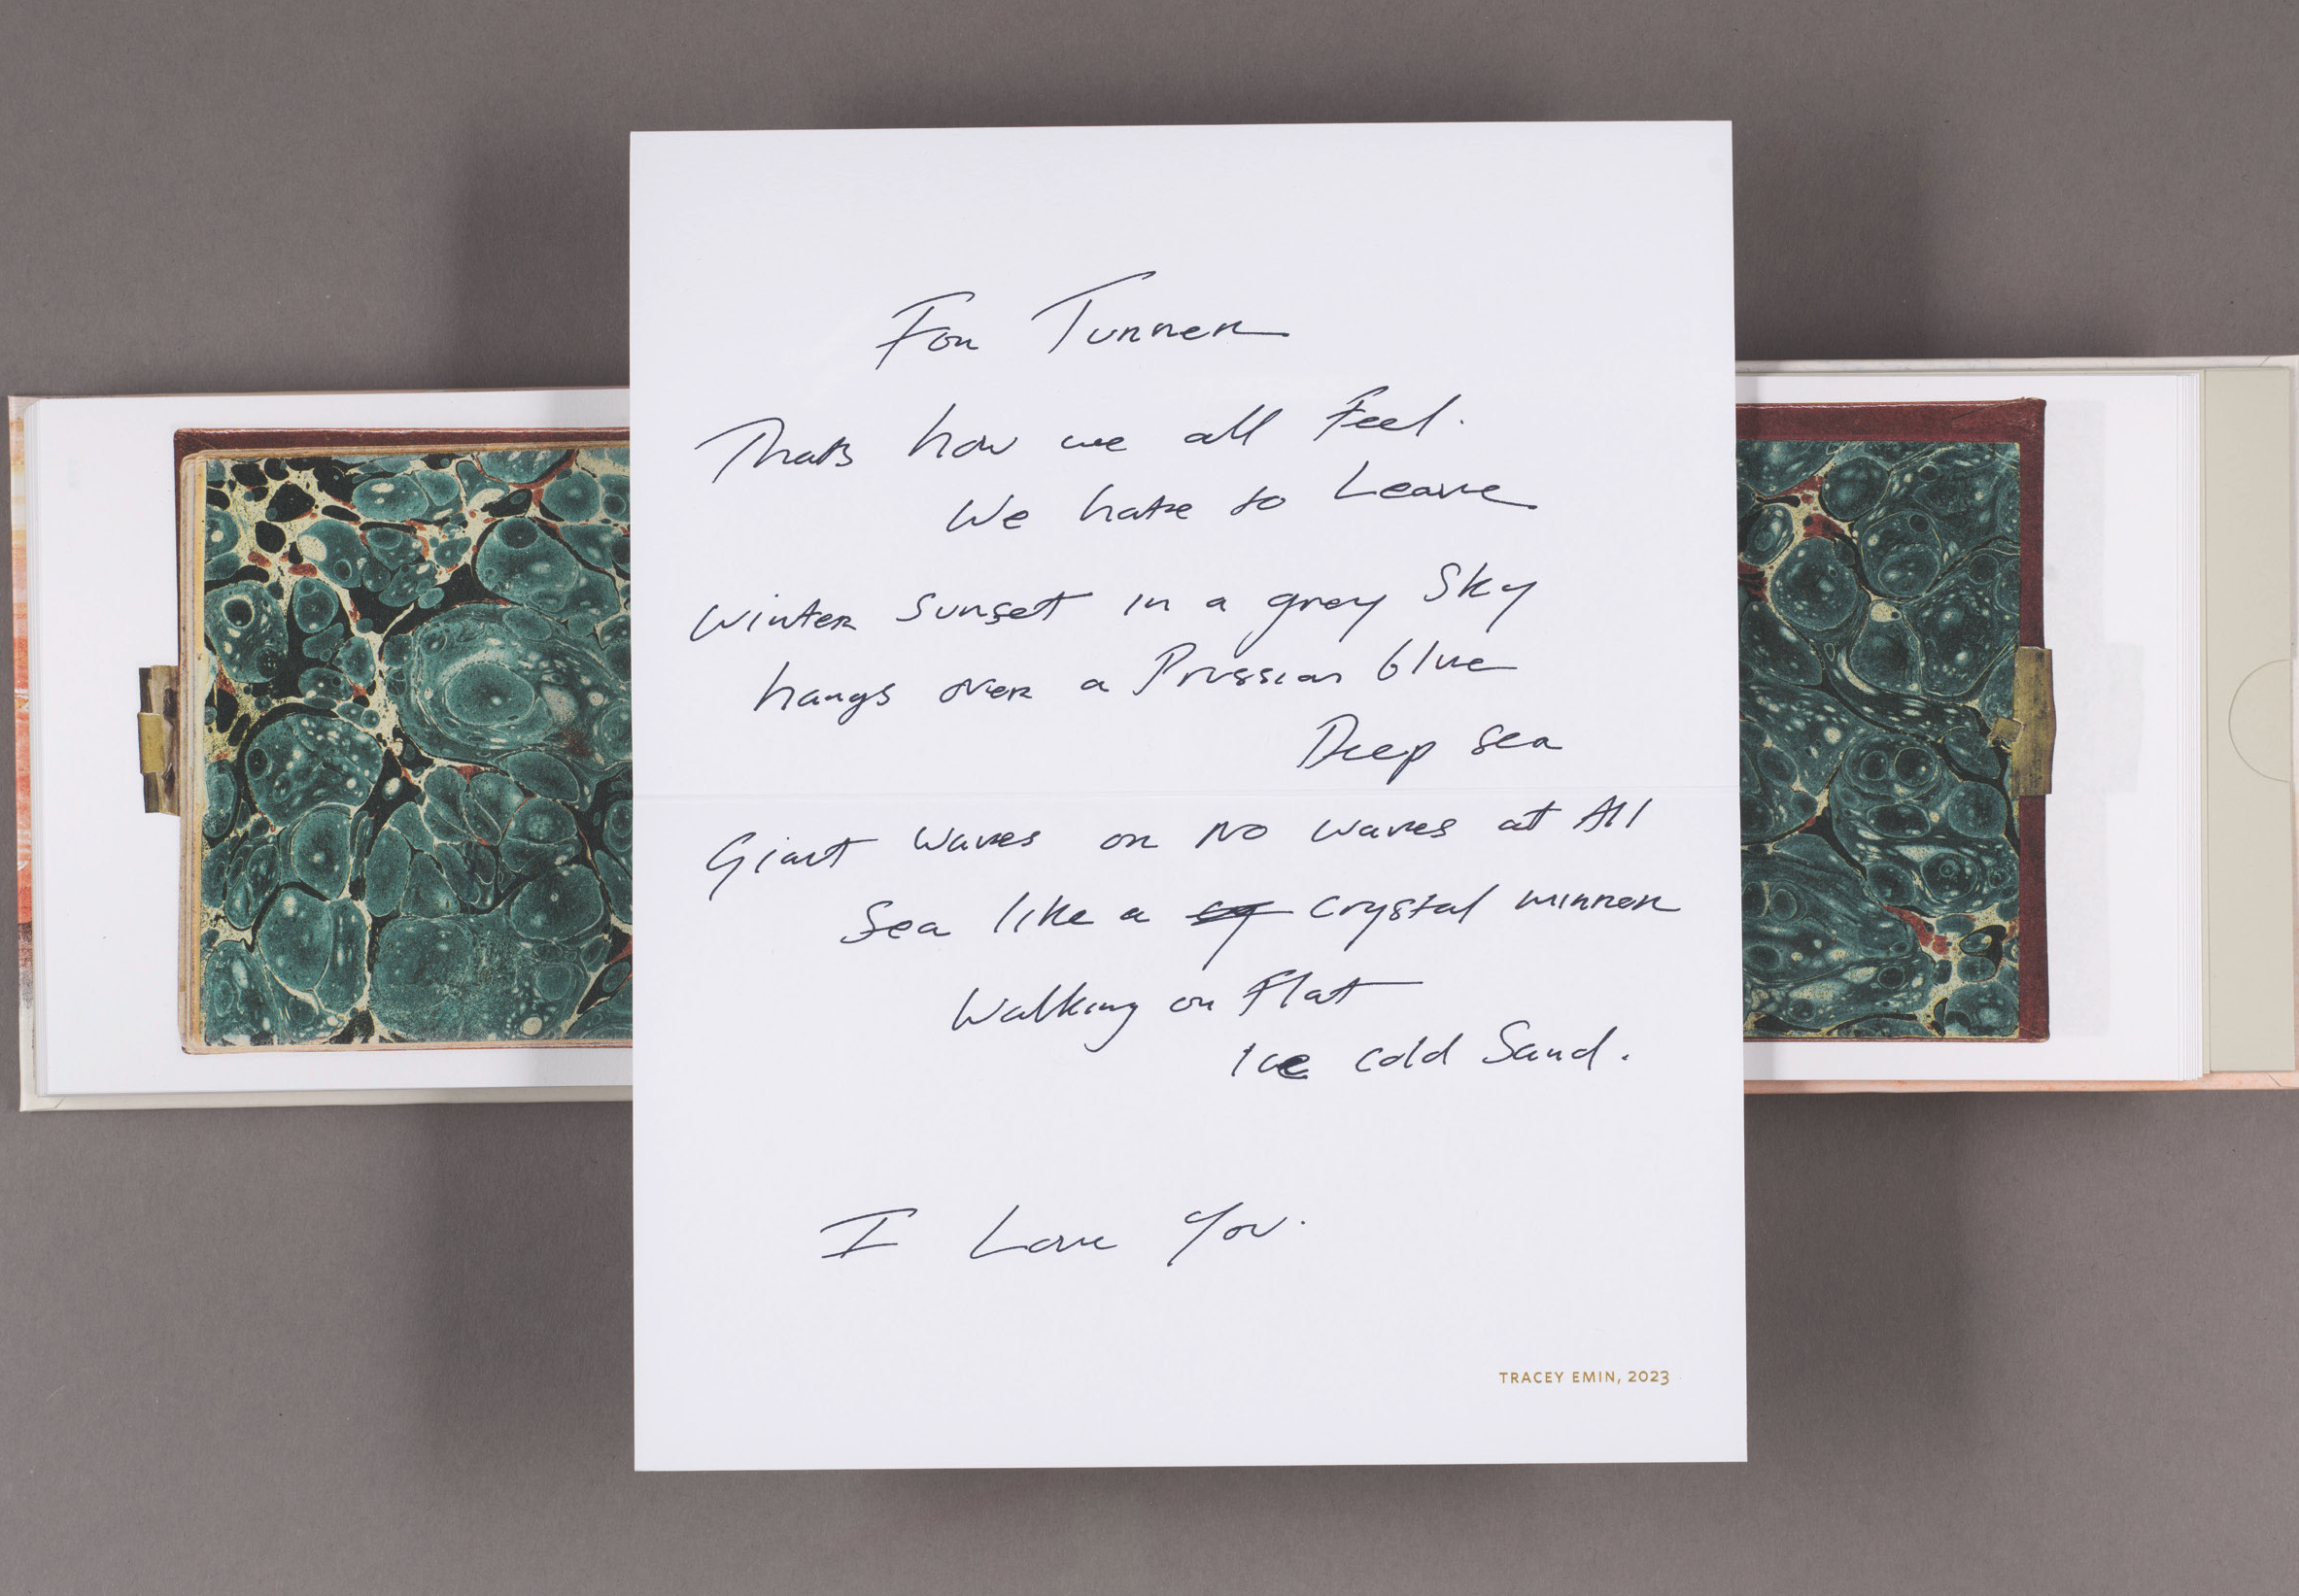 For Turner
Thats how we all Feel.
We hate to Leave
Winter Sunset in a grey Sky
hangs over a Prussian blue
Deep sea
Giant waves or No waves at All
Sea like a cy crystal mirror
Walking on Flat
Ice cold Sand.
I Love You.
TRACEY EMIN, 2023